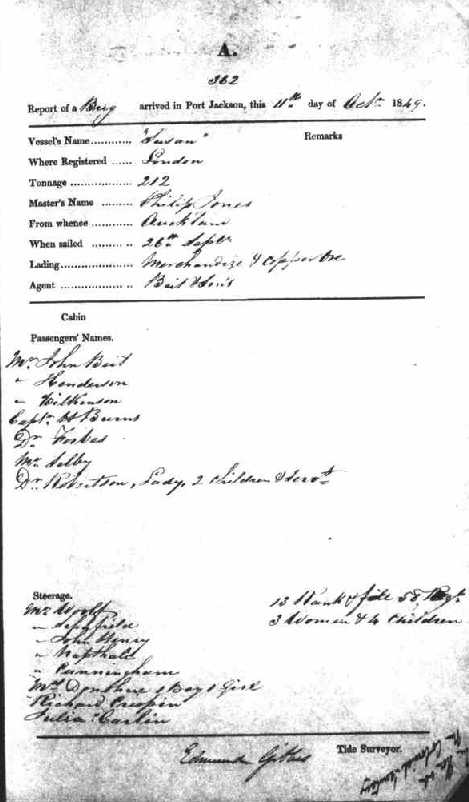 A.
362
Report of a Brig arrived in Port Jackson, this 11th day of Octr 1849.
Vessel's Name "Susan" Remarks
Where Registered London
Tonnage 212
Master's Name Philip Jones
From whence Auckland
When sailed 26th Septr
Lading Merchandize & Copper Ore
Agent
Cabin
Passengers' Names.
Mr John
" Henderson
" Wilkinson
Captn H Burns
Dr Forbes
Mr Selby
Dr Robertson, Lady, 2 Children & Servt
Steerage. 13 Rank & file 58 Regt
Mr Woolf 3 Women & 4 Children
"
" John Henry
"
" Cunningham
Mrs 1 Boy 1 Girl
Richard
Julia
Edmund Gilkes Tide Surveyor.